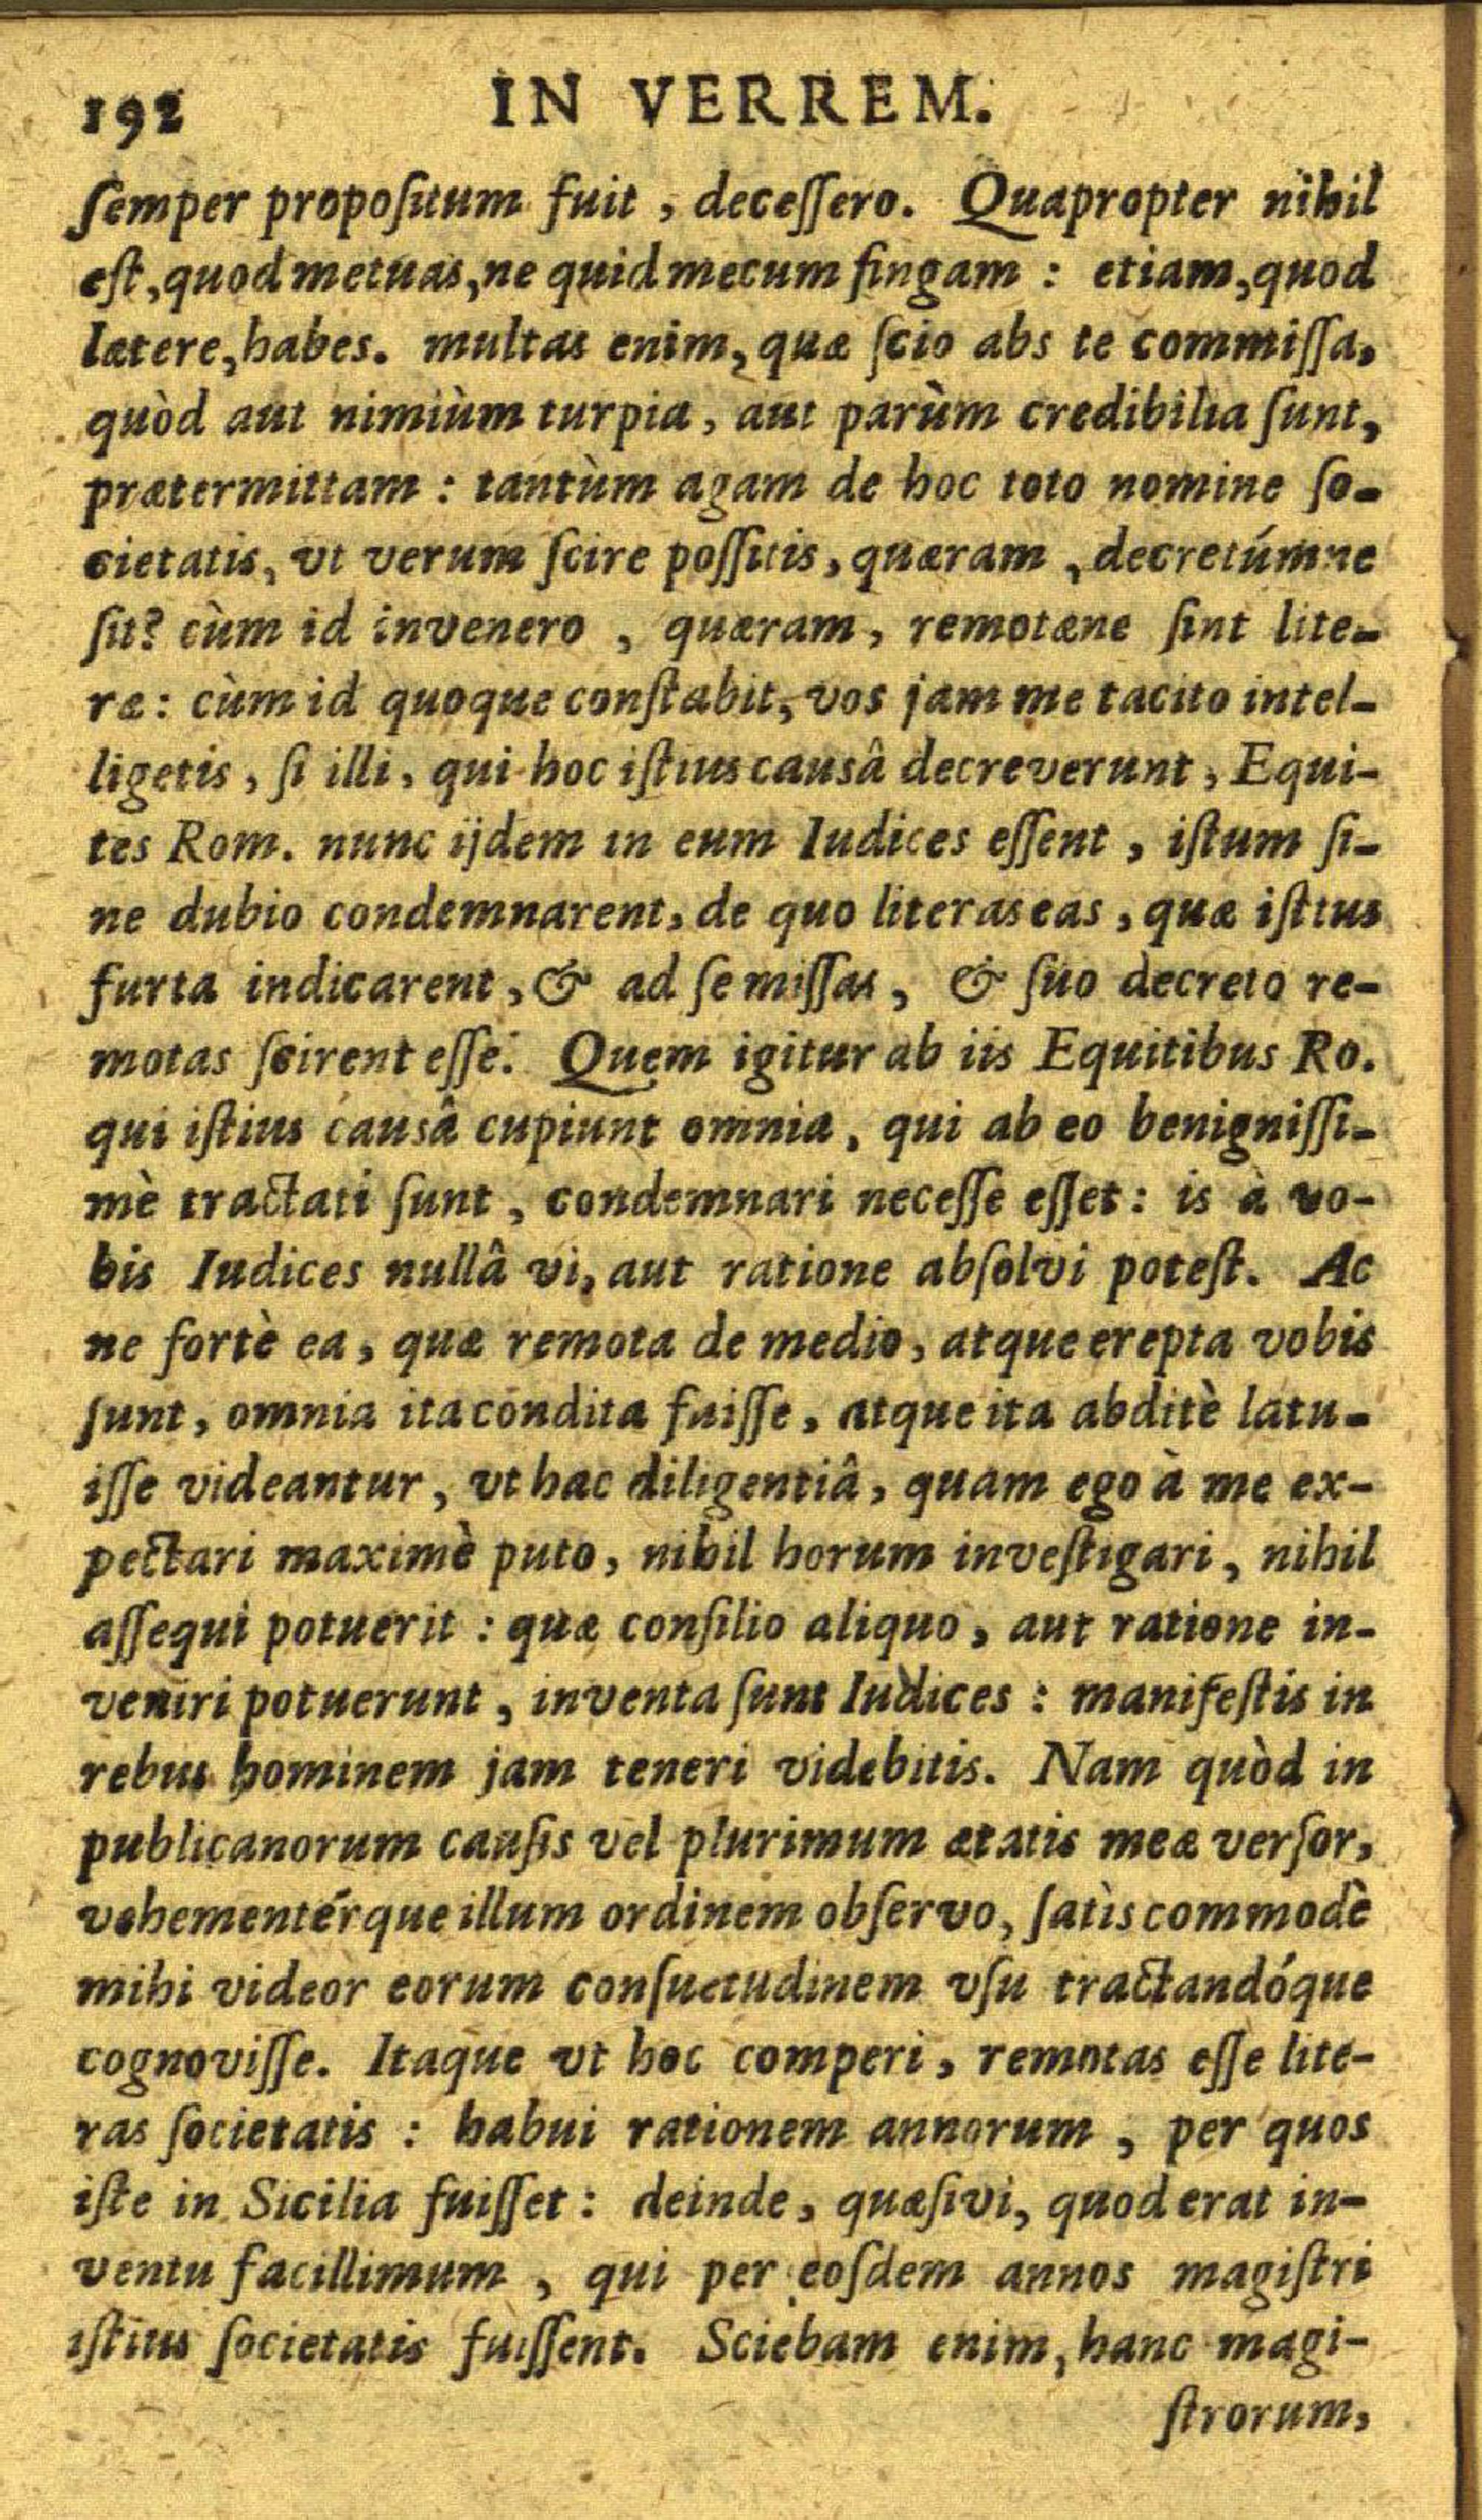 192 IN VERREM.
ſemper propoſitum fuit, deceſſero. Quapropter nihil
eſt, quod metuas, ne quid mecum fingam : etiam, quod
lætere, habes. multas enim, quæ ſcio abs te commiſſa,
quòd aut nimiùm turpia, aut parùm credibilia ſunt,
prætermittam : tantùm agam de hoc toto nomine ſo-
cietatis, vt verum ſcire poſſitis, quæram, decretúmne
ſit? cùm id invenero, quæram, remotæne ſint lite-
ræ: cùm id quoque conſtabit, vos jam me tacito intel-
ligetis, ſi illi, qui hoc iſtius causâ decreverunt, Equi-
tes Rom. nunc ijdem in eum Iudices eſſent, iſtum ſi-
ne dubio condemnarent, de quo literas eas, quæ iſtius
furta indicarent, & ad ſe miſſas, & ſuo decreto re-
motas ſcirent eſſe. Quem igitur ab iis Equitibus Ro.
qui iſtius causâ cupiunt omnia, qui ab eo benigniſſi-
mè tractati ſunt, condemnari neceſſe eſſet: is à vo-
bis Iudices nullâ vi, aut ratione abſolvi poteſt. Ac
ne fortè ea, quæ remota de medio, atque erepta vobis
ſunt, omnia ita condita fuiſſe, atque ita abditè latu-
iſſe videantur, vt hac diligentiâ, quam ego à me ex-
pectari maximè puto, nihil horum inveſtigari, nihil
aſſequi potuerit : quæ conſilio aliquo, aut ratione in-
veniri potuerunt, inventa ſunt Iudices : manifeſtis in
rebus hominem jam teneri videbitis. Nam quòd in
publicanorum cauſis vel plurimum ætatis meæ verſor,
vehementérque illum ordinem obſervo, ſatìs commodè
mihi videor eorum conſuetudinem vſu tractandóque
cognoviſſe. Itaque vt hoc comperi, remotas eſſe lite-
ras ſocietatis : habui rationem annorum, per quos
iſte in Sicilia fuiſſet: deinde, quæſivi, quod erat in-
ventu facillimum, qui per eoſdem annos magiſtri
iſtius ſocietatis fuiſſent. Sciebam enim, hanc magi-
ſtrorum,